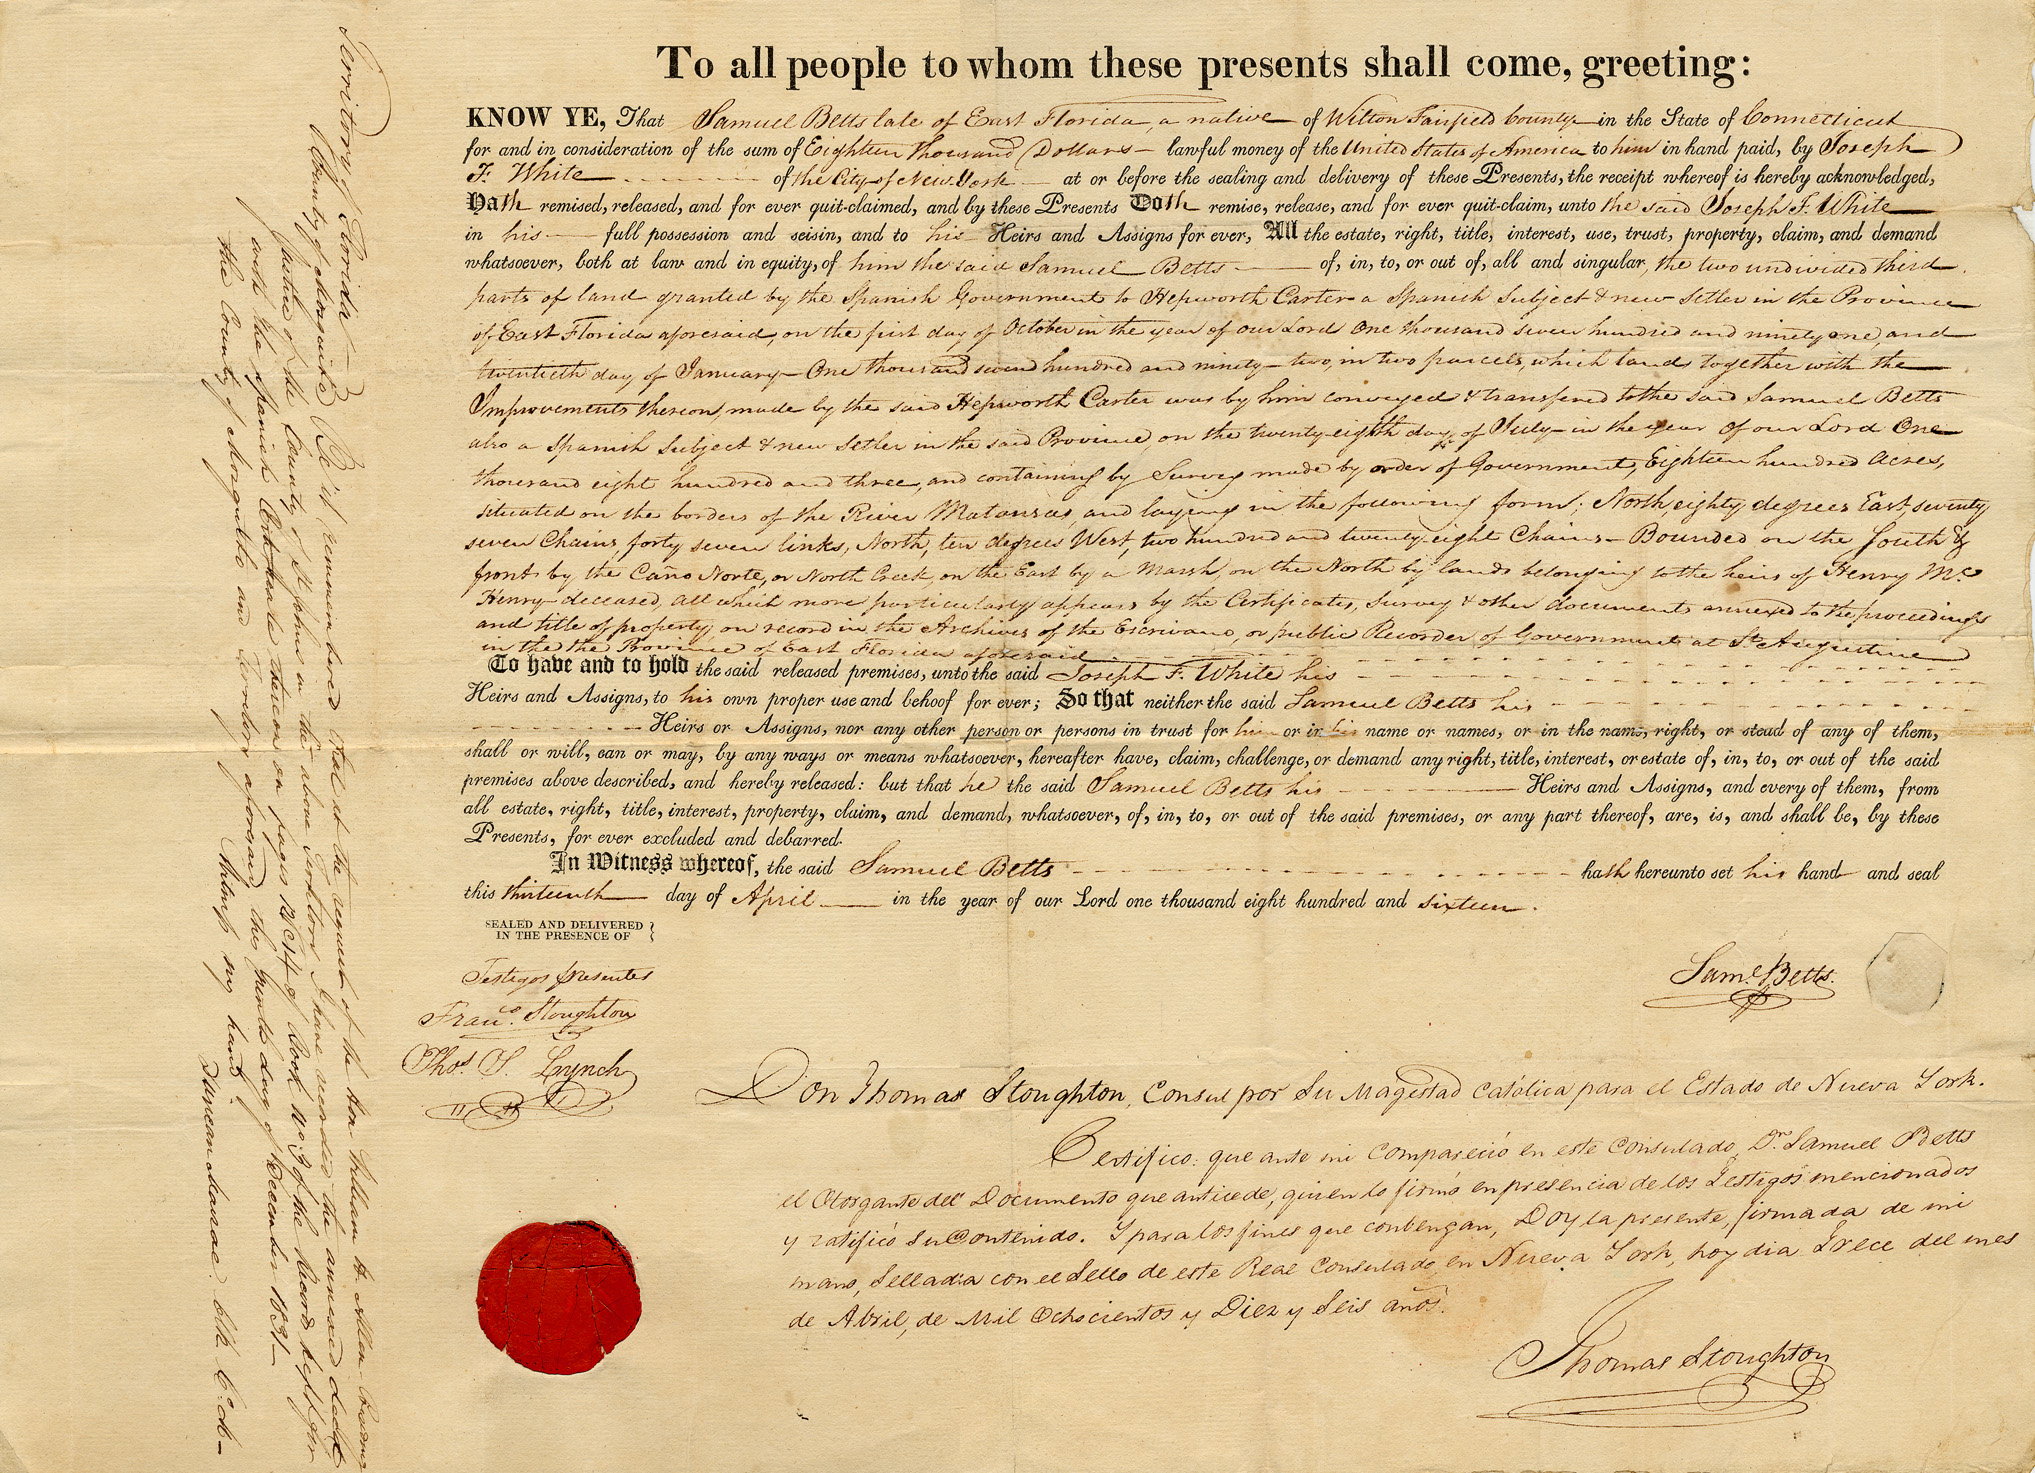 To all people to whom these presents shall come, greeting:
KNOW YE, That Samuel Betts late of East Florida, a native of Wilton Fairfield County in the State of Connecticut
for and in consideration of the sum of Eighteen thousand Dollars — lawful money of the United States of America to him in hand paid, by Joseph
F. White of the City of New York — at or before the sealing and delivery of these Presents, the receipt whereof is hereby acknowledged,
Hath remised, released, and for ever quit-claimed, and by these Presents Doth remise, release, and for ever quit-claim, unto the said Joseph F. White
in his full possession and seisin, and to his Heirs and Assigns for ever, All the estate, right, title, interest, use, trust, property, claim, and demand
whatsoever, both at law and in equity, of him the said Samuel Betts of, in, to, or out of, all and singular, the two undivided third
parts of land granted by the Spanish Government to Hepworth Carter a Spanish Subject & new Settler in the Province
of East Florida aforesaid, on the first day of October in the year of our Lord One thousand seven hundred and ninety one, and
twentieth day of January One thousand seven hundred and ninety two, in two parcels, which lands together with the
Improvements thereon, made by the said Hepworth Carter was by him conveyed & transfered to the said Samuel Betts
also a Spanish Subject & new Settler in the said Province, on the twenty eighth day of July in the year of our Lord One
thousand eight hundred and three, and containing by Survey made by order of Government, Eighteen hundred Acres,
situated on the borders of the River Matansas, and laying in the following form; North, eighty degrees East, seventy
seven Chains, forty seven links, North, ten degrees West, two hundred and twenty eight Chains — Bounded on the South &
front by the Caño Norte, or North Creek, on the East by a Marsh, on the North by lands belonging to the heirs of Henry Mc
Henry deceased, all which more particularly appears by the Certificates, Survey & other documents annexed to the proceedings
and title of property on record in the Archives of the Escrivano, or public Recorder of Government at St. Augustine
in the the Province of East Florida aforesaid
To have and to hold the said released premises, unto the said Joseph F. White his
Heirs and Assigns, to his own proper use and behoof for ever; So that neither the said Samuel Betts his
Heirs or Assigns, nor any other person or persons in trust for him or in his name or names, or in the name, right, or stead of any of them,
shall or will, can or may, by any ways or means whatsoever, hereafter have, claim, challenge, or demand any right, title, interest, or estate of, in, to, or out of the said
premises above described, and hereby released: but that he the said Samuel Betts his Heirs and Assigns, and every of them, from
all estate, right, title, interest, property, claim, and demand, whatsoever, of, in, to, or out of the said premises, or any part thereof, are, is, and shall be, by these
Presents, for ever excluded and debarred.
In Witness whereof, the said Samuel Betts hath hereunto set his hand and seal
this thirteenth day of April in the year of our Lord one thousand eight hundred and sixteen.
SEALED AND DELIVERED
IN THE PRESENCE OF
Testigos presentes
Franco. Stoughton
Thos. S. Lynch
Saml. Betts.
Don Thomas Stoughton, Consul por Su Magestad Católica para el Estado de Nueva York.
Certifico: que ante mi compareció en este Consulado, Dn. Samuel Betts
el Otorgante del Documento que antecede, quien lo firmó en presencia de los Testigos mencionados
y ratificó su Contenido. Y para los fines que conbengan, Doy la presente, firmada de mi
mano, Sellada con el Sello de este Real Consulado en Nueva York, hoy dia Trece del mes
de Abril, de Mil Ochocientos y Diez y Seis años.
Thomas Stoughton
Territory of Florida
County of Mosquito
Be it remembered that at the request of the Hon William H. Allen
partner of the County of St. Johns in the above Territory I have recorded the annexed deed
with the Spanish Certificate thereon on pages 12, 13, 14 of book No. 3 of the Records kept for
the County of Mosquito and Territory aforesaid this day of December 1831
Witness my hand
Duncan Clk C. ct.